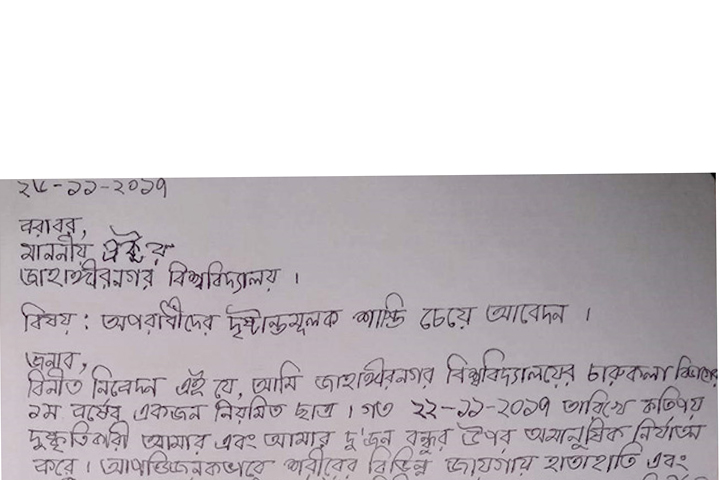 ২৪-১১-২০১৭
বরাবর,
মাননীয় প্রক্টর
জাহাঙ্গীরনগর বিশ্ববিদ্যালয় ।
বিষয় : অপরাধীদের দৃষ্টান্তমূলক শাস্তি চেয়ে আবেদন ।
জনাব,
বিনীত নিবেদন এই যে, আমি জাহাঙ্গীরনগর বিশ্ববিদ্যালয়ের চারুকলা বিভাগের
১ম বর্ষের একজন নিয়মিত ছাত্র । গত ২২-১১-২০১৭ তারিখে কতিপয়
দুষ্কৃতিকারী আমার এবং আমার দু'জন বন্ধুর উপর অমানুষিক নির্যাতন
করে । আপত্তিজনকভাবে শরীরের বিভিন্ন জায়গায় হাতাহাতি এবং